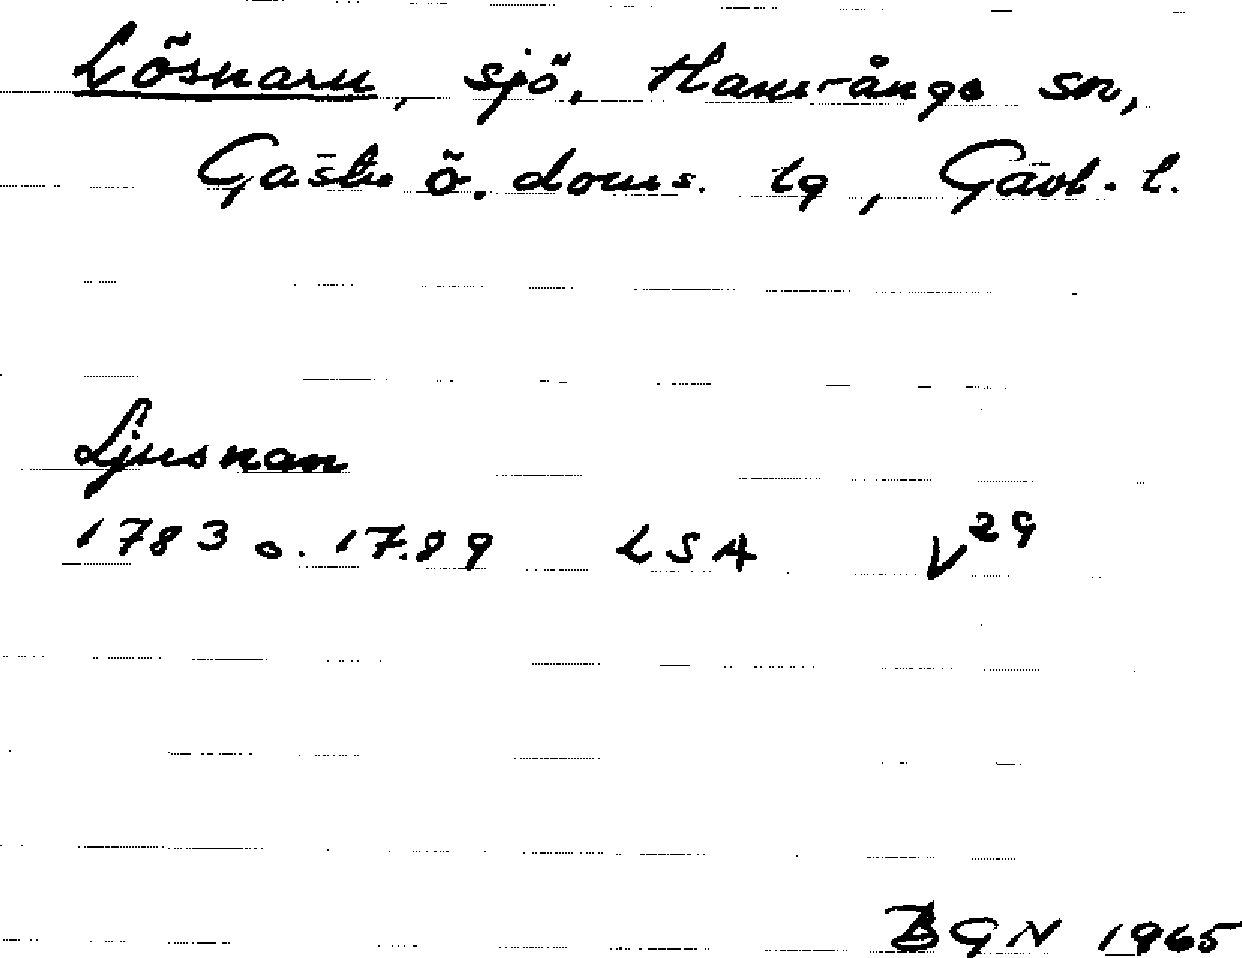 Lösnaru, sjö, Hamrånge sn,
Gästr ö. doms. lg, Gävl. l.
Ljusnan
1783 o. 1789 LSA V29
BGN 1965